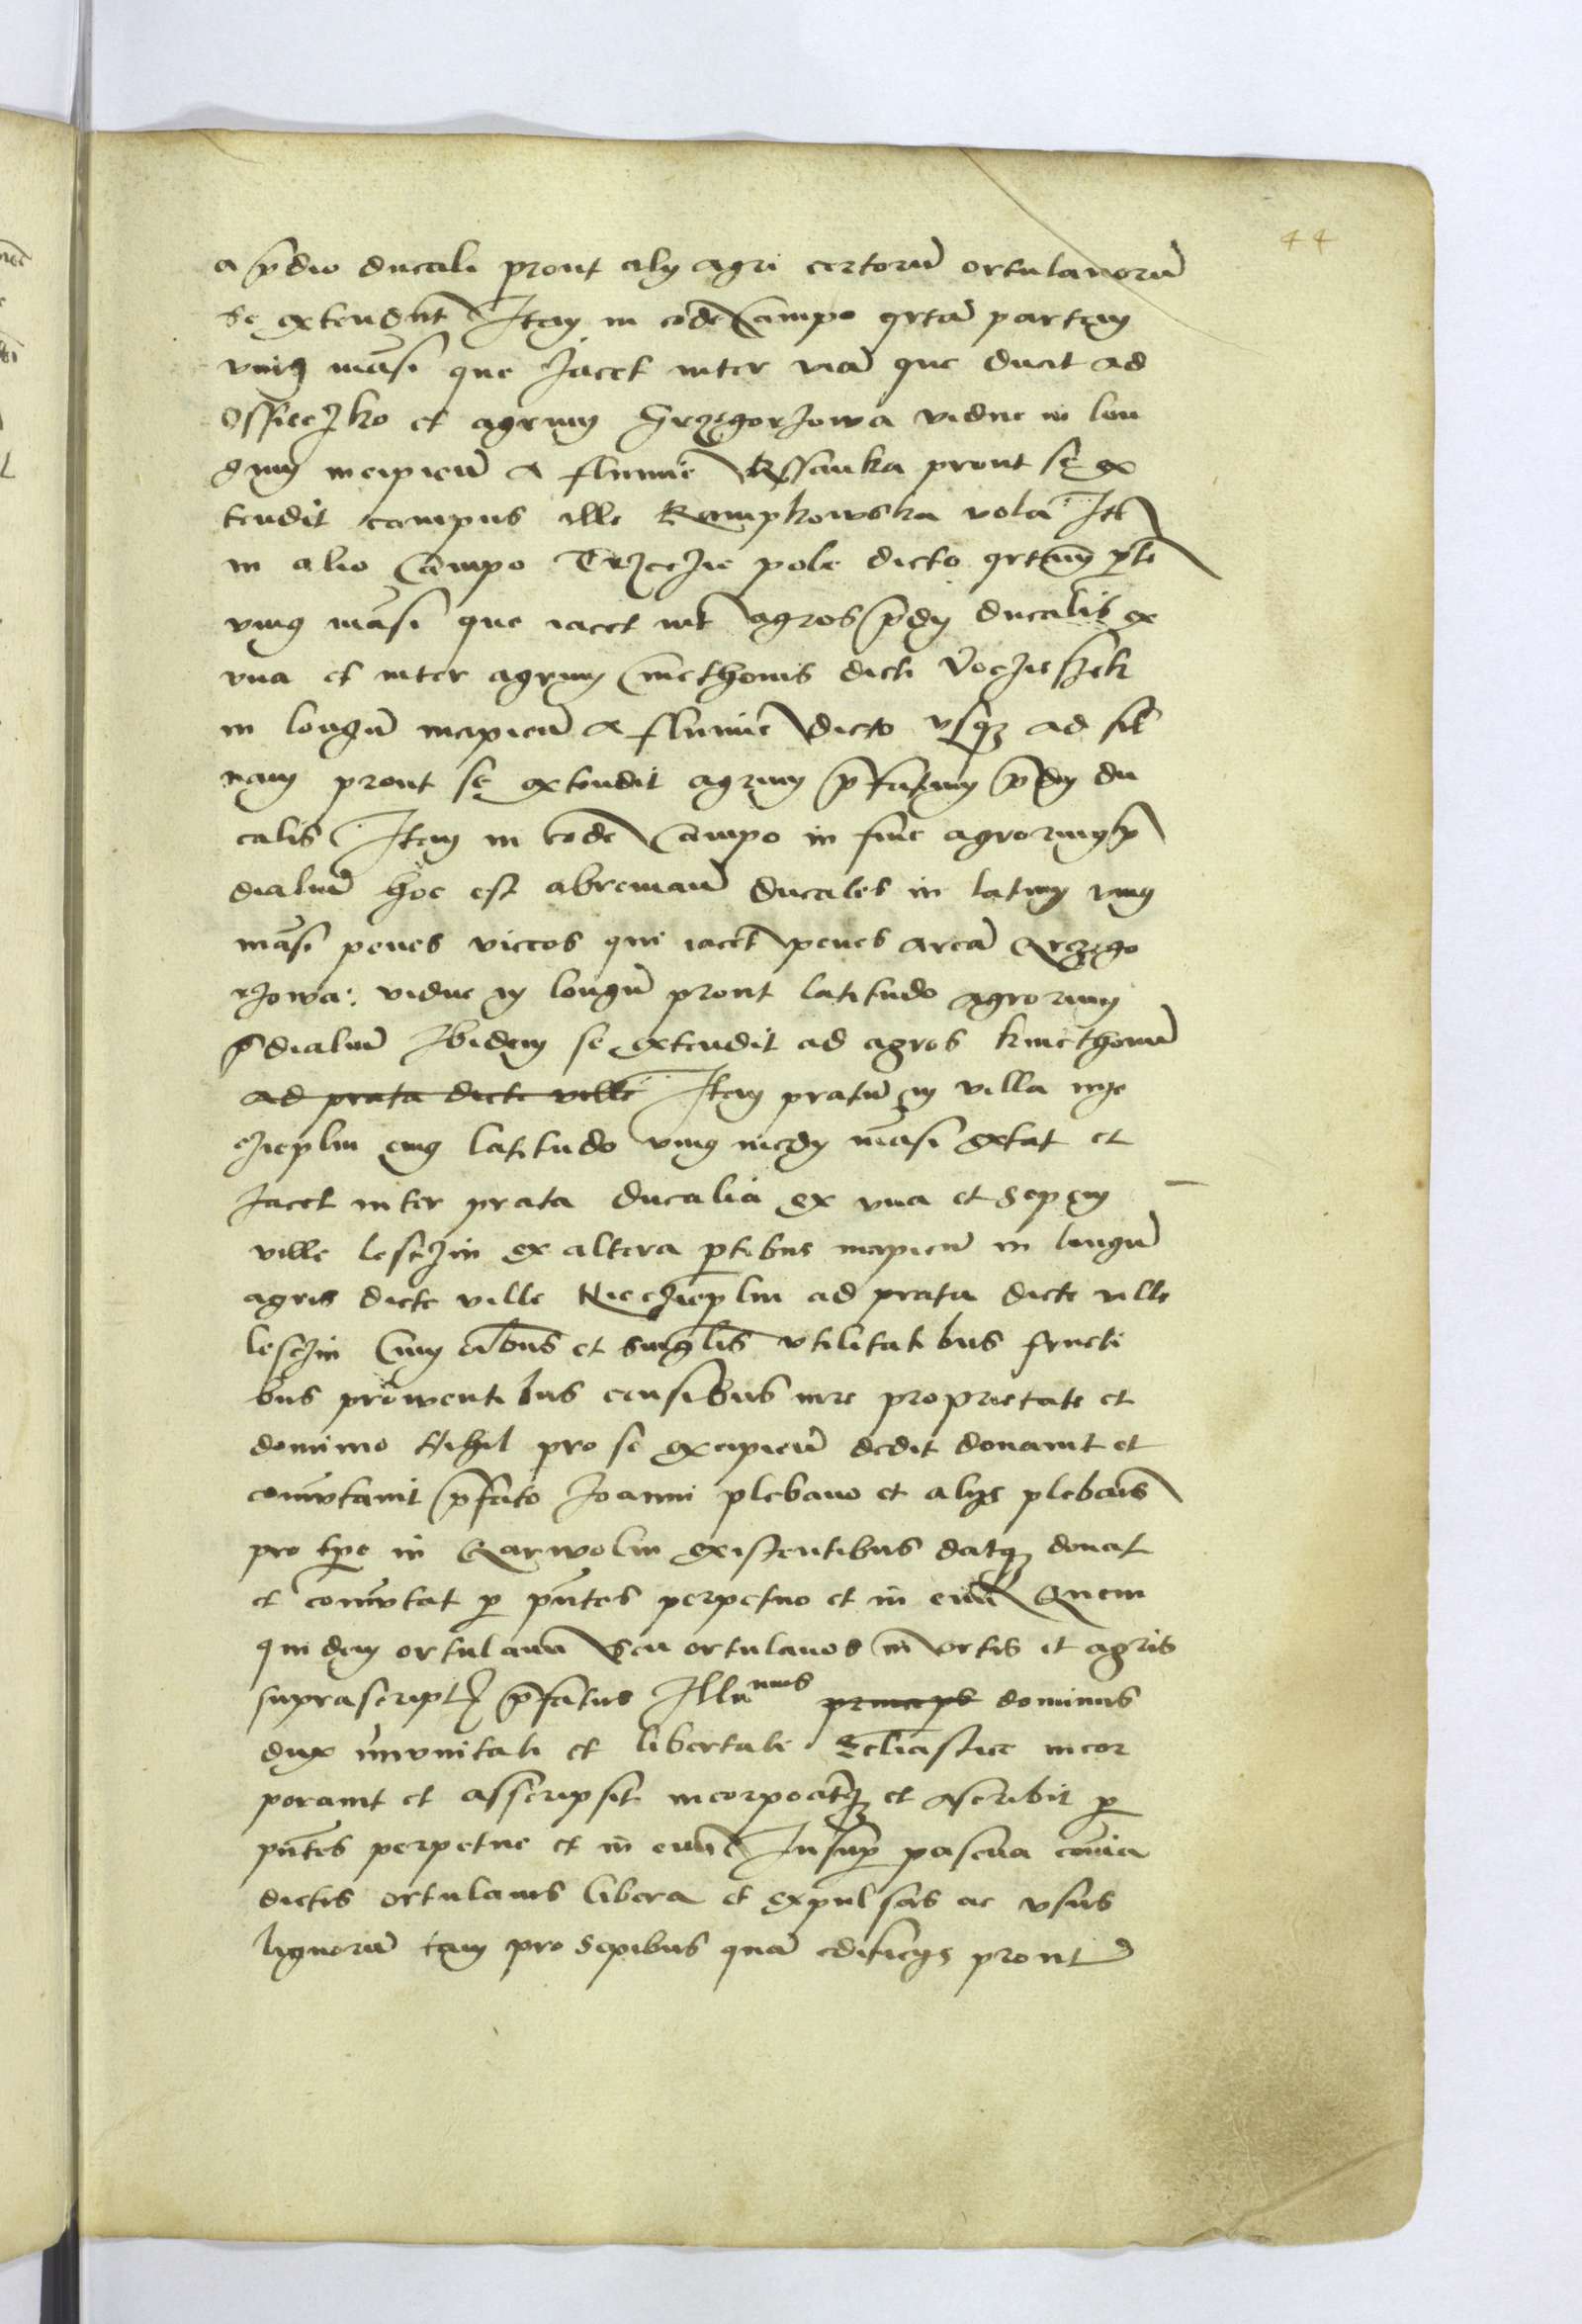 44
a p̄dio ducali prout alij agri certorū ortulanorū
se extendūt Item in eodē Campo q̄rtā partem
vniq māsi que Jacet inter viā que ducit ad
Ossieczko et agrum Grzegorzowa vidue in lon
gum incipien̄ a flumīe Wssanka prout se ex
tendit campus ille Rampkowska vola Itē
in alio Campo Trzeczie pole dicto q̄rtam p̄tē
vniq māsi que iacet int̄ agros p̄dij ducalis ex
vna et inter agrum Cmethonis dicti Voczieszek
in longū incipien̄ a flumīe dicto vsq ad sil
uam prout se extendit agrum p̄fatum p̄dij du
calis Item in eodē Campo in fine agrorum p̄
dialiū hoc est abrenian̄ ducales in latum vniq
māsi penes viccos qui iacēt penes areā Grzego
rzowa: vidue in longū prout latitudo agrorum
p̄dialiū Ibidem se extendit ad agros kmethonū
ad prata dicte ville Item pratū in villa nye
czieplin cuiq latitudo vniq medij māsi extat et
Jacet inter prata ducalia ex vna et sepem
ville lesczin ex altera p̄tibus incipien̄ in longū
agris dicte ville Nieczieplin ad prata dicte ville
lesczin Cum oībus et singlīs vtilitatibus fructi
bus prowentibus censibus iure proprietate et
dominio Nihil pro se excipien̄ dedit donauit et
com̄vtauit p̄fato Joanni plebano et alijs plebanīs
pro tp̄e in Garwolin existentibus datq donat
et com̄vtat p pn̄tes perpetuo et in euū Quem
quidem ortulanū seu ortulanos in̄ ortis et agris
suprascriptꝭ p̄fatus Illu^mus princeps dominus
dux im̄vnitati et libertati Ecliāstice incor
porauit et asscripsit incorpoatq et ascribit p
pn̄tes perpetue et in̄ euū Insup pascua com̄ia
dictis ortulanis libera et expulsas ac vsus
lignorū tam pro sepibus quā edificijs prout